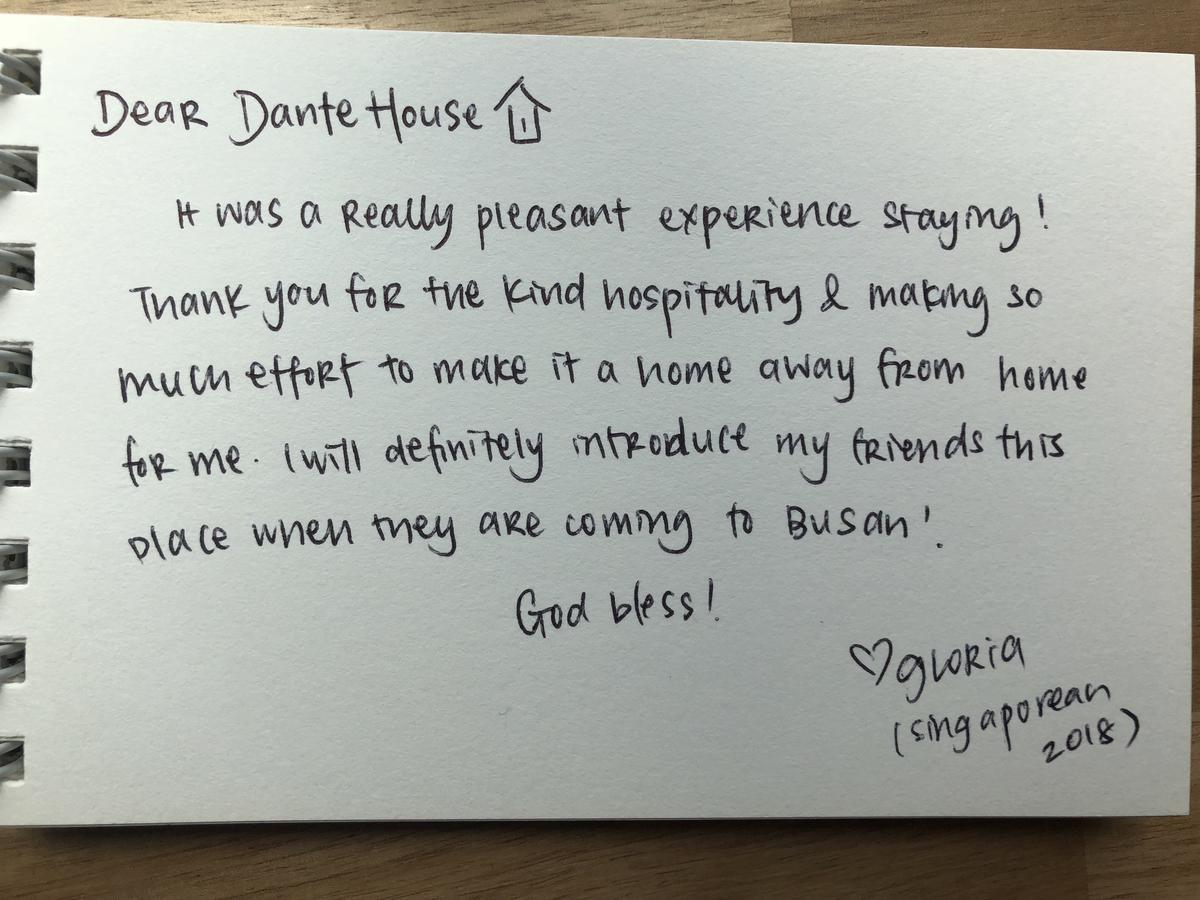 Dear Dante House
It was a really pleasant experience staying!
Thank you for the kind hospitality & making so
much effort to make it a home away from home
for me. I will definitely introduce my friends this
place when they are coming to Busan!
God bless!
♡ gloria
(singaporean
2018)